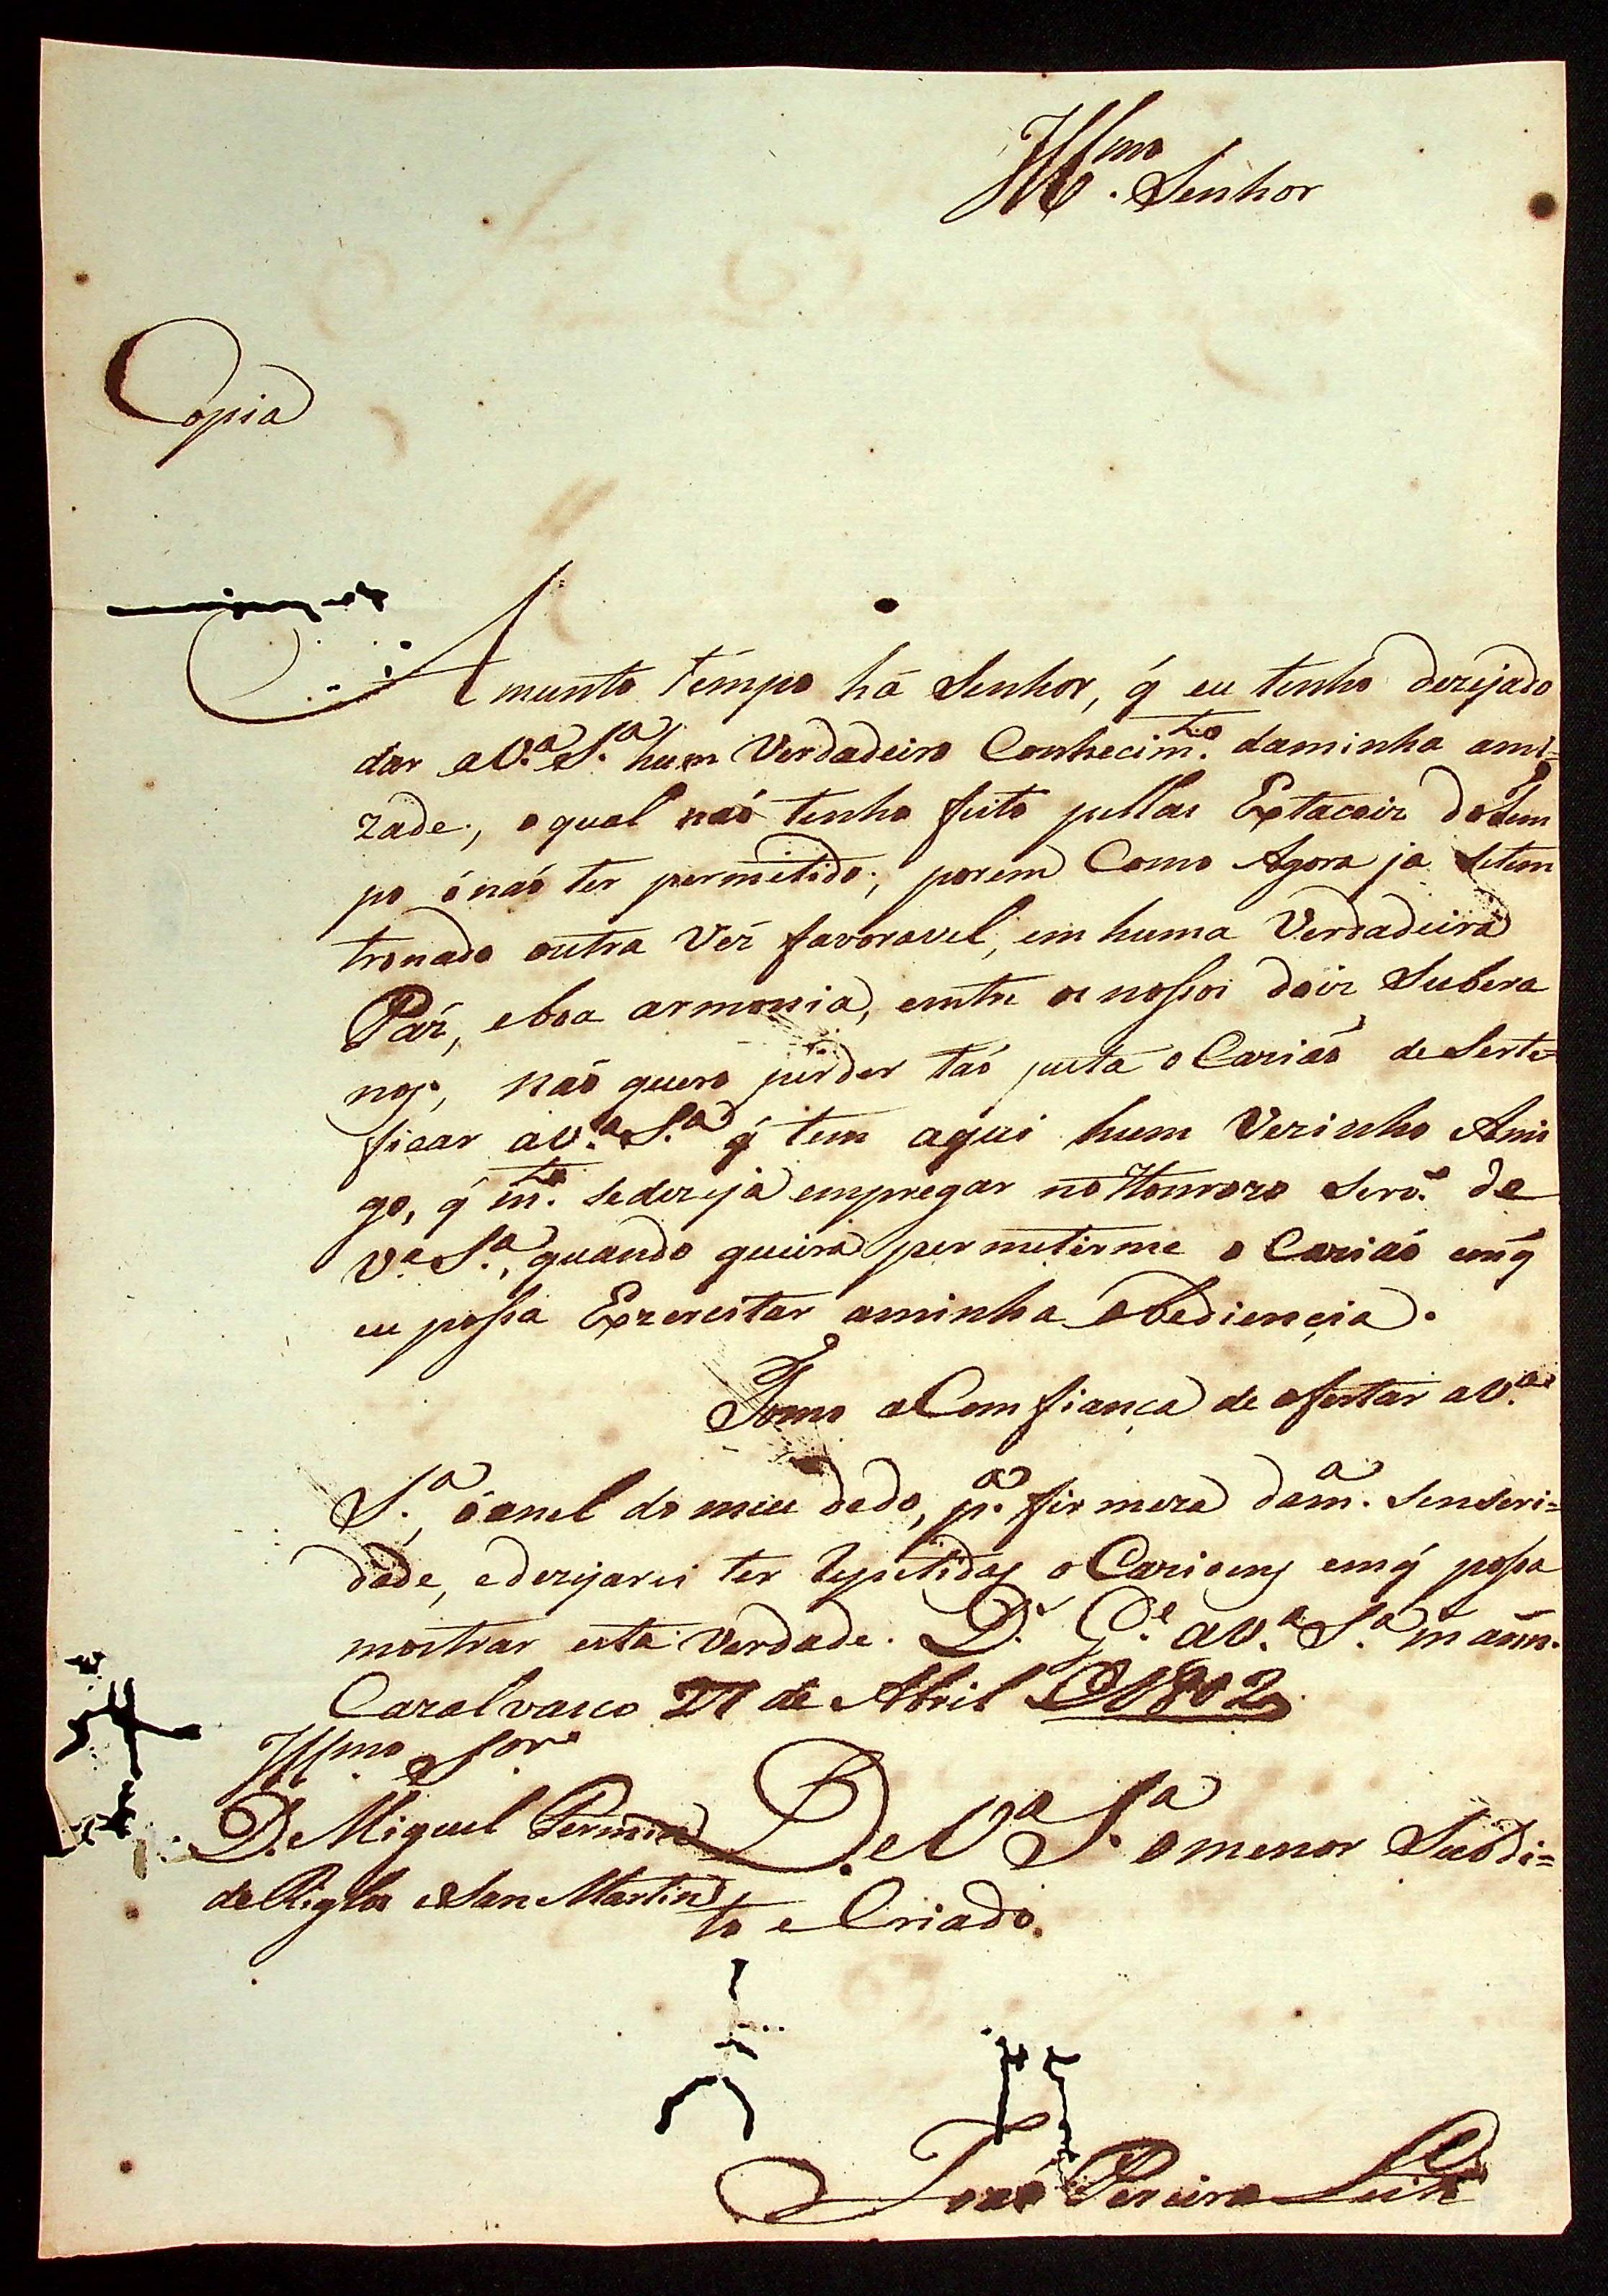 Illmo. Senhor
Copia
A munto tempo há Senhor, q́ eu tenho dezejado
dar aV.ª S.ª hum Verdadeiro Conhecim.to daminha ami=
zade, oqual naó tenho feito pellas Extacoiz dotem
po ónaó ter permetido; porem Como Agora ja setem
tronado outra Vez favoravel, em huma Verdadeira
Páz, eboa armonia, emtre os nossos doiz Subera
nos, naó quero perder taó justa oCaziaó deSerte=
ficar aV.ª S.ª q́ tem aqui hum Vezinho Ami
go, q́ m.to sedezeja empregar noHonrozo serv.º de
V.ª S.ª, quando queira permetirme oCaziaó emq́
eu possa Exzercitar aminha obediençia.
Tomo aComfiança de ofertar aV.ª
S.ª, óanel do meu dedo, p.ª firmeza dam.ª senseri=
dade, edezejarei ter repetidas oCazioens emq́ possa
mostrar esta verdade. D.s G.e aV.ª S.ª m ann.
Cazalvasco 27 de Abril D 1802
Illmo. Snr.
D. Miguel Fermin DeV.ª S.ª omenor Subdi=
deRigloz eSan Martin
to eCriado.
Joaó Pereira Leite